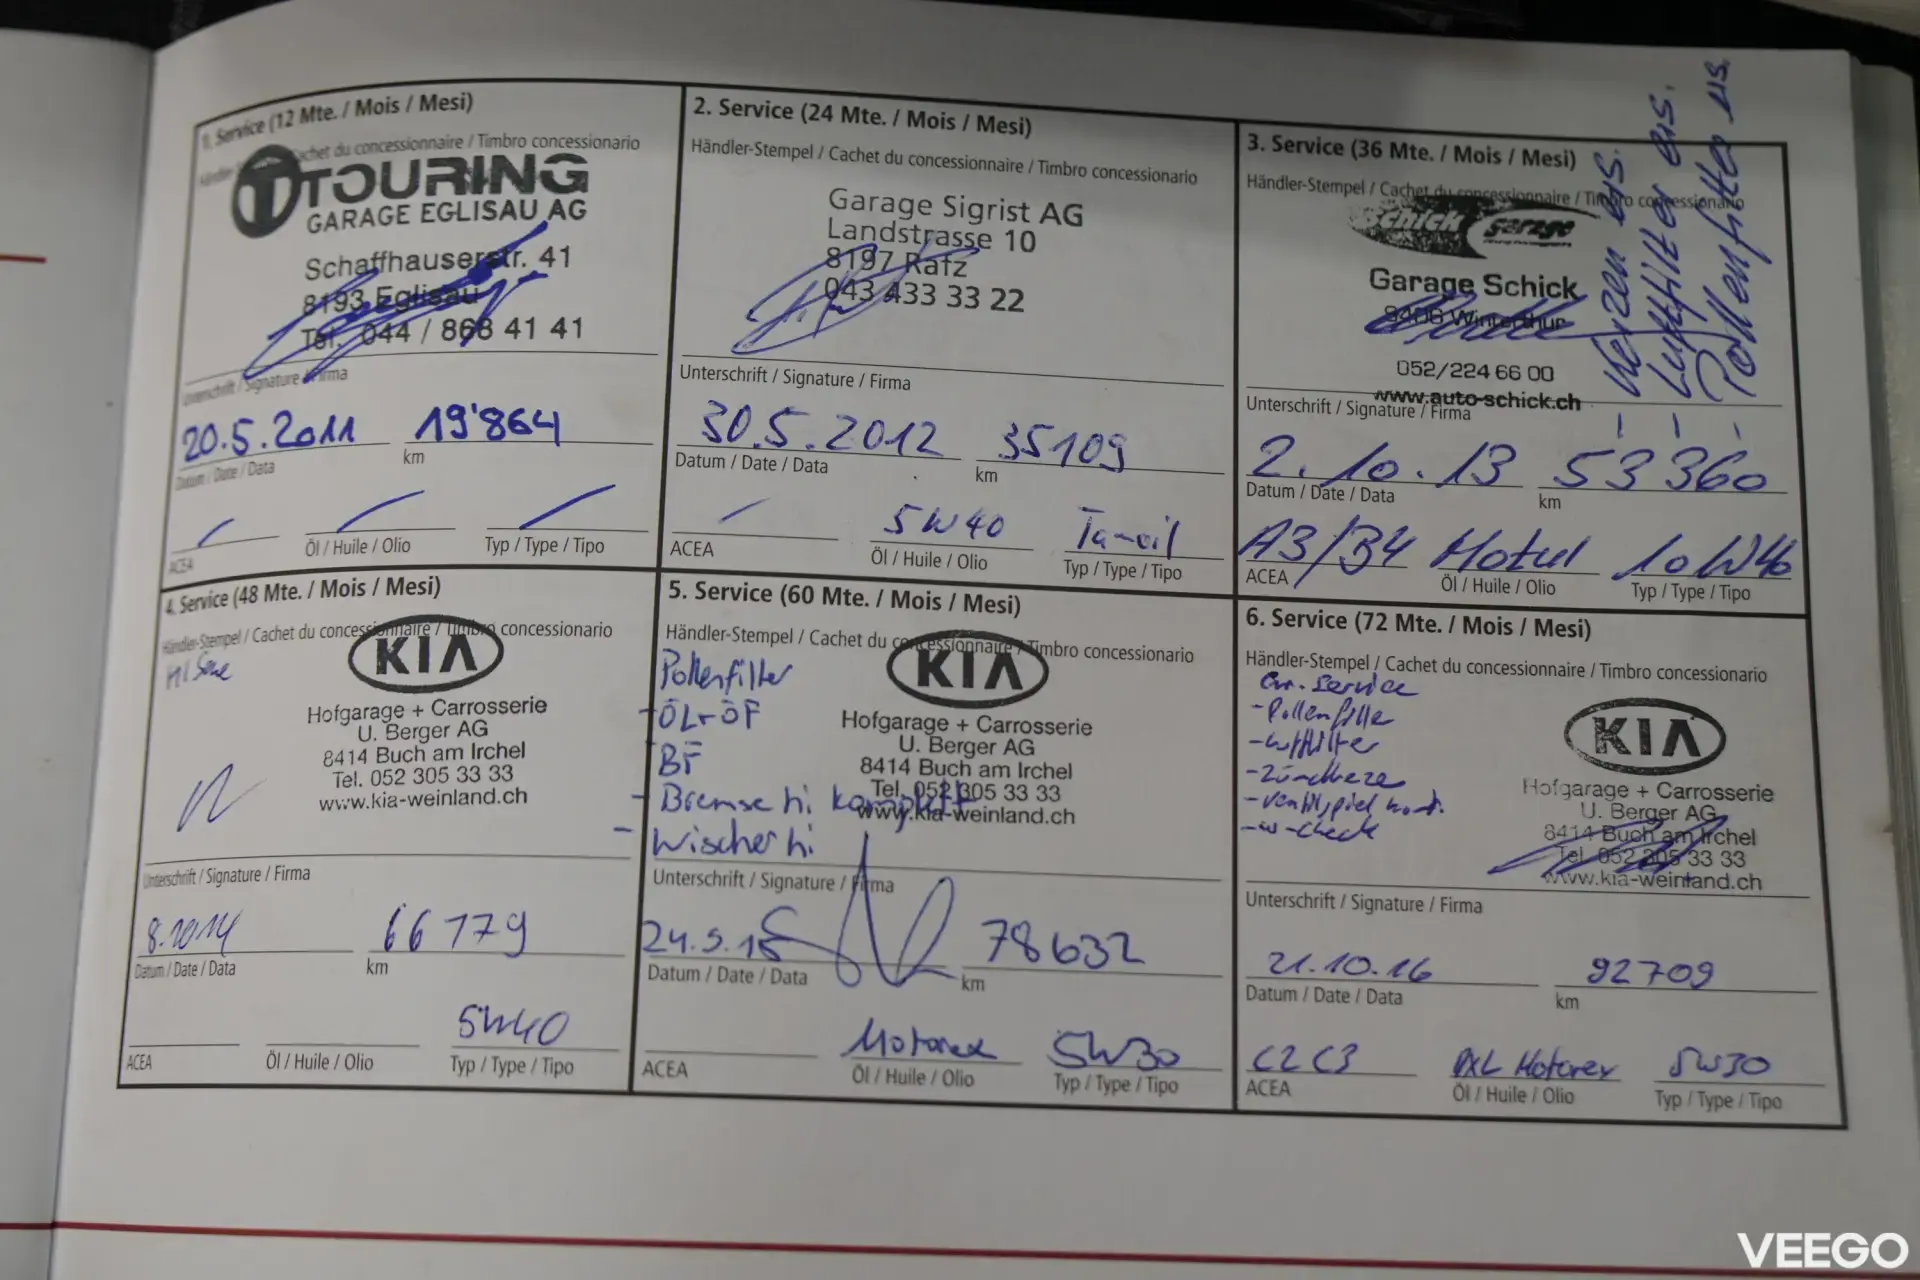 1. Service (12 Mte. / Mois / Mesi)
Cachet du concessionnaire / Timbro concessionario
TOURING
GARAGE EGLISAU AG
Schaffhauserstr. 41
8193 Eglisau
Tel. 044 / 868 41 41
Unterschrift / Signature / Firma
20.5.2011 19'864
Datum / Date / Data km
ACEA Öl / Huile / Olio Typ / Type / Tipo
2. Service (24 Mte. / Mois / Mesi)
Händler-Stempel / Cachet du concessionnaire / Timbro concessionario
Garage Sigrist AG
Landstrasse 10
8197 Rafz
043 433 33 22
Unterschrift / Signature / Firma
30.5.2012 35109
Datum / Date / Data km
5W40 Tamoil
ACEA Öl / Huile / Olio Typ / Type / Tipo
3. Service (36 Mte. / Mois / Mesi)
Händler-Stempel / Cachet du concessionnaire / Timbro concessionario
Schick garage
Garage Schick
8406 Winterthur
052/224 66 00
www.auto-schick.ch
- Kerzen ers.
- Luftfilter ers.
- Pollenfilter ers.
Unterschrift / Signature / Firma
2.10.13 53360
Datum / Date / Data km
A3/B4 Motul 10W40
ACEA Öl / Huile / Olio Typ / Type / Tipo
4. Service (48 Mte. / Mois / Mesi)
Händler-Stempel / Cachet du concessionnaire / Timbro concessionario
KIA
Hofgarage + Carrosserie
U. Berger AG
8414 Buch am Irchel
Tel. 052 305 33 33
www.kia-weinland.ch
Unterschrift / Signature / Firma
8.2014 66779
Datum / Date / Data km
5W40
ACEA Öl / Huile / Olio Typ / Type / Tipo
5. Service (60 Mte. / Mois / Mesi)
Händler-Stempel / Cachet du concessionnaire / Timbro concessionario
KIA
Hofgarage + Carrosserie
U. Berger AG
8414 Buch am Irchel
Tel. 052 305 33 33
www.kia-weinland.ch
Pollenfilter
- ÖL + ÖF
BF
- Bremse hi komplett
- Wischer hi
Unterschrift / Signature / Firma
24.9.15 78632
Datum / Date / Data km
Motorex 5W30
ACEA Öl / Huile / Olio Typ / Type / Tipo
6. Service (72 Mte. / Mois / Mesi)
Händler-Stempel / Cachet du concessionnaire / Timbro concessionario
Gr. Service
- Pollenfilter
- Luftfilter
- Zündkerze
- Ventilspiel kont.
- ws-check
KIA
Hofgarage + Carrosserie
U. Berger AG
8414 Buch am Irchel
Tel. 052 305 33 33
www.kia-weinland.ch
Unterschrift / Signature / Firma
21.10.16 92709
Datum / Date / Data km
C2 C3 Motorex 5W30
ACEA Öl / Huile / Olio Typ / Type / Tipo
VEEGO